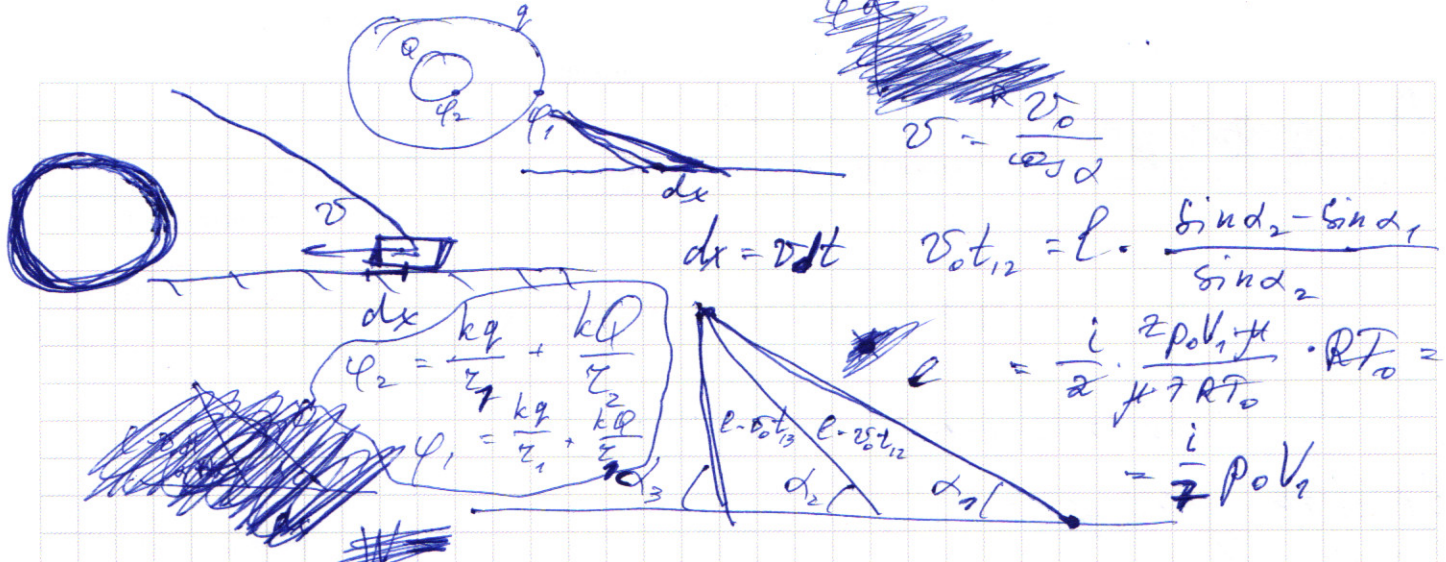 q
Q
φ₂
φ₁
dx
v = v₀ / cos α
v
dx
dx = vdt
v₀t₁₂ = l · (sin α₂ - sin α₁) / sin α₂
φ₂ = kq/r₁ + kQ/r₂
φ₁ = kq/r₁ + kQ/r₁
l - v₀t₁₃
l - v₀t₁₂
α₃
α₂
α₁
l
= i/2 · p₀V₁μ / μRT₀ · RT₀ =
= i/2 p₀V₁